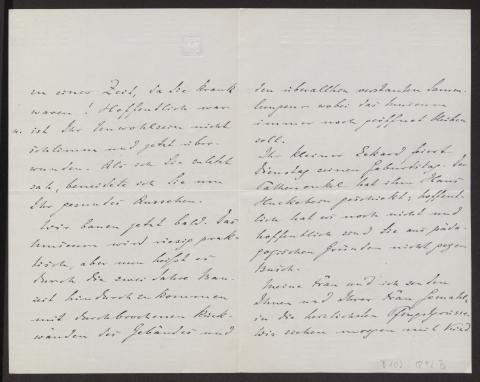 zu einer Zeit, da Sie krank
waren! Hoffentlich war
u. ist Ihr Unwohlsein nicht
schlimm und jetzt über-
wunden. Als ich Sie zuletzt
sah, beneidete ich Sie um
Ihr gesundes Aussehen.
Wir bauen jetzt bald. Das
Museum wird riesig prak-
tisch, aber nun heißt es
durch die zwei Jahre Bau-
zeit hindurchzukommen
mit durchbrochenen Rück-
wänden des Gebäudes und
den überallhin verstauten Samm-
lungen – wobei das Museum
immer noch geöffnet bleiben
soll.
Ihr kleiner Eckard feiert
Dienstag seinen Geburtstag. Der
Pathenonkel hat ihm Hans
Huckebein geschickt; hoffent-
lich hat er noch nicht und
hoffentlich sind Sie aus päda-
gogischen Gründen nicht gegen
Busch.
Meine Frau und ich senden
Ihnen und Ihrer Frau Gemahlin
die herzlichsten Pfingstgrüsse.
Wir ziehen morgen mit Kind